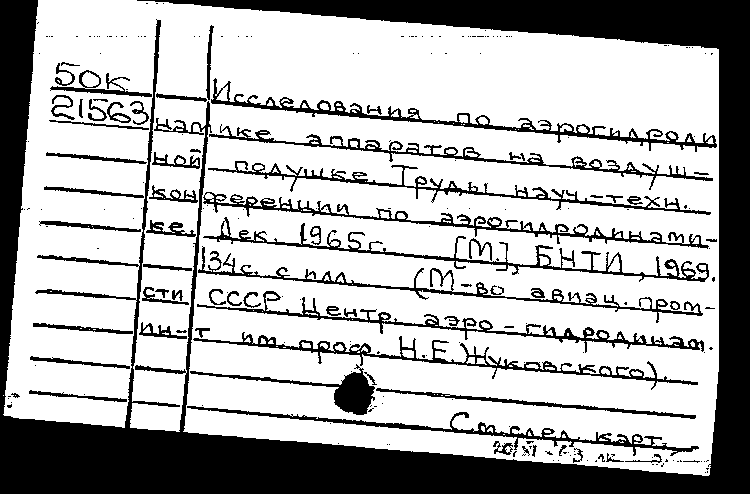 50К
21563
Исследования по аэрогидроди
намике аппаратов на воздуш=
ной подушке. Труды науч.-техн.
конференции по аэрогидродинами-
ке. Дек. 1965г. [М.], БНТИ, 1969.
134с. с илл. (М-во авиац. пром-
сти СССР. Центр. аэро-гидродинам.
ин-т им. проф. Н.Е.Жуковского).
См.след. карт.